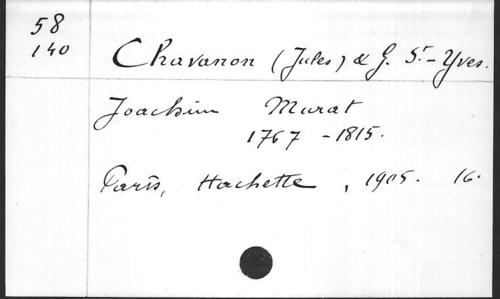 58
140
Chavanon (Jules) & G. St-Yves.
Joachim Murat
1767 - 1815.
Paris, Hachette, 1905. 16.